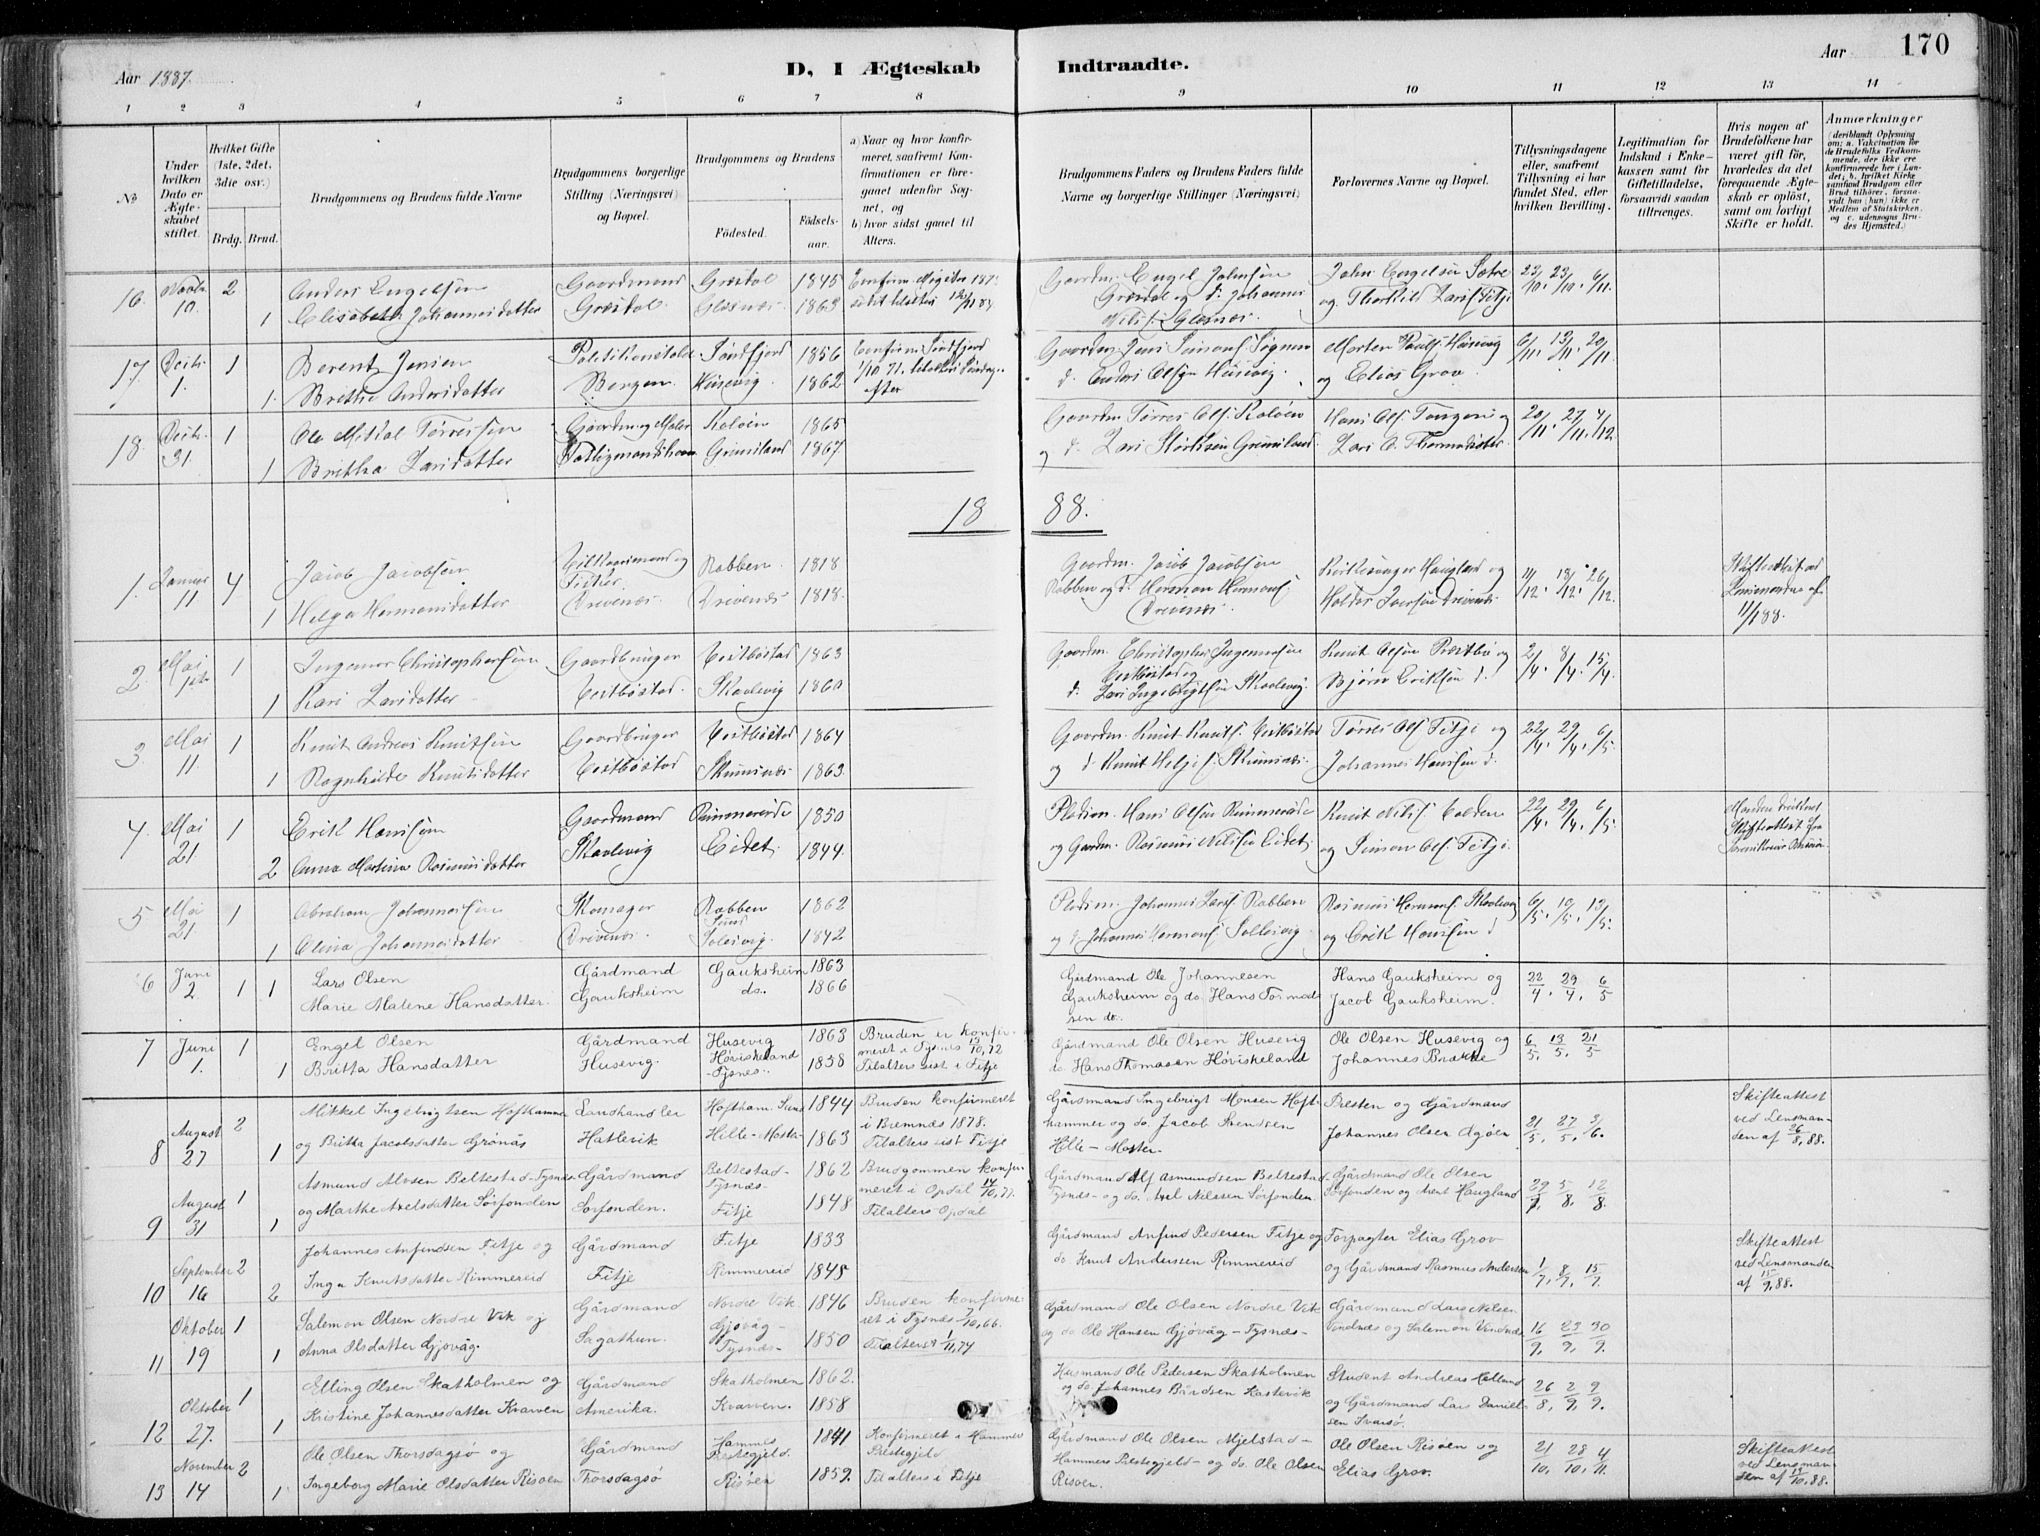 Aar 1887.
D, I Ægteskab
Indtraadte.
Aar
170
1 2 3 4 5 6 7 8 9 10 11 12 13 14
No
Under hvilken Dato er Ægteskabet stiftet.
Hvilket Gifte (1ste, 2det, 3die osv.)
Brdg. Brud.
Brudgommens og Brudens fulde Navne
Brudgommens borgerlige Stilling (Næringsvei) og Bopæl.
Brudgommens og Brudens
Fødested.
Fødselsaar.
a) Naar og hvor konfirmeret, saafremt Konfirmationen er foregaaet udenfor Sognet, og
b) hvor sidst gaaet til Alters.
Brudgommens Faders og Brudens Faders fulde Navne og borgerlige Stillinger (Næringsvei)
Forlovernes Navne og Bopæl.
Tillysningsdagene eller, saafremt Tillysning ei har fundet Sted, efter hvilken Bevilling.
Legitimation for Indskud i Enkekassen samt for Giftetilladelse, forsaavidt saadan tiltrænges.
Hvis nogen af Brudefolkene har været gift før, hvorledes da det foregaaende Ægteskab er opløst, samt om lovligt Skifte er holdt.
Anmærkninger
(deriblandt Oplysning om: a. Vakcination for de Brudefolks Vedkommende, der ikke ere konfirmerede her i Landet, b. hvilket Kirkesamfund Brudgom eller Brud tilhører, forsaavidt han (hun) ikke er Medlem af Statskirken, og c. udensogns Brudes Hjemsted.)
16. 10. 2 Anders Engelsen Gaardmand 1845
1 Elisabeth Johannesdatter Glosnæs 1863
Gaardm. Engel Johnsen
John Engelsen Sætre 23/10. 23/10. 6/11.
17. 1. 1 Berent Jensen Søndfjord 1856
1. Brithe Andersdatter Bergen. Husevig. 1862
d. Anders Olsen Husevig.
Morten Pauls. Husevig og Elias Grov. 6/11. 13/11. 20/11.
18. 31. 1 Ole Mikal Tørresen Koløen 1865
1 Britha Larsdatter Grimsland 1867
Gaardm. Tørres Ols. Koløen
20/11. 27/11. 4/12
18 88.
1. Januar 11 4 Jacob Jacobsen Fisker Robben 1818
1 Helga Hermansdatter Drivenæs. Drivenæs 1818.
Gaardm. Jacob Jacobsen Robben og d. Herman Hermans. Drivenæs.
Kirkesanger Haugland og Halder Iversen Drivenæs. 11/12. 18/12. 26/12.
Skifteattest ved Lensmanden af 11/1 88.
2. Mai 1ste 1 Ingemar Christophersen Gaardbruger Vestbøstad 1863
1 Kari Larsdatter Vestbøstad. Skaalevig 1860
Gaardm. Christopher Ingemarsen Vestbøstad og d. Lars Ingebrigtsen Skaalevig.
Knut Olsen Præstbø og Bjørn Eriksen d. 2/4. 8/4. 15/4.
3. Mai 11. 1 Knut Andreas Knutsen Gaardbruger Vestbøstad 1864
1 Ragnhilde Knutsdatter Vestbøstad Skumsnæs 1863.
Gaardm. Knut Knuts. Vestbøstad og d. Knut Helges. Skumsnæs.
Tørres Ols. Fitje og Johannes Hansen d. 22/4. 29/4. 6/5.
4. Mai 21 1 Erik Hansen Gaardmand Rimmereide 1850
2 Anna Martina Rasmusdatter Skaalevig Eidet. 1844.
Pladsm. Hans Olsen Rimmereide og Gardm. Rasmus Nilsen Eidet.
Knut Nils. Valden og Simon Ols. Fitje. 22/4. 29/4. 6/5.
Manden druknet
5 Mai 21 1 Abraham Johannessen Skomager Robben 1862
1 Olina Johannesdatter Drivenæs. 1842
Pladsm. Johannes Lars. Robben og d. Johannes Hermans. Sollesvig.
Rasmus Hermans. Skaalevig og Erik Hansen d. 6/5. 10/5. 13/5.
6 Juni 2 1 1 Lars Olsen Gårdmand Gauksheim 1863
Marie Malene Hansdatter. Gauksheim do. 1866
Gårdmand Ole Johannesen Gauksheim og do. Hans Tormodsen do.
Hans Gauksheim og Jacob Gauksheim. 22/4. 29/4. 6/5
7 Juni 1. 1 Engel Olsen Gårdmand Husevig 1863
1 Britta Hansdatter Husevig. Høviskeland -Tysnes- 1838
Bruden er konfirmeret i Tysnes 13/10, 72 Tilalters sist i Fitje
Gårdmand Ole Olsen Husevig do. Hans Thomasen Høviskeland
Ole Olsen Husevig og Johannes Brække 6/5, 13/5, 21/5
8 August 27 2 Mikkel Ingebrigtsen Hoftkammer Landhandler Hoftham. Sund 1844
1 og Britta Jacobsdatter Grønås Hatlevik Hille-Moster 1863
Bruden konfirmeret i Bremnes 1878. Tilalters sist Fitje
Gårdmand Ingebrigt Monsen Hoftkammer og do. Jacob Svendsen Hille-Moster.
Presten og Gårdmand Johannes Olsen Agøen 21/5, 27/5, 3/6.
Skifteattest ved Lensmanden af 26/8, 88.
9 August 31 1 Asmund Alvsen Beltestad-Tysnes Gårdmand Beltestad-Tysnes- 1862
1 og Marthe Axelsdatter Sørfonden Sørfonden. Fitje 1848
Brudgommen konfirmeret i Opdal 14/10, 77. Tilalters Opdal
Gårdmand Alf Asmundsen Beltestad-Tysnes- og do. Axel Nielssen Sørfonden
Gårdmand Ole Olsen Sørfonden og Arnt Haugland 29/7, 5/8, 12/8
10 September 16 2 Johannes Anfindsen Fitje og Gårdmand Fitje 1833
2 Inga Knutsdatter Rimmereid Fitje Rimmereid 1845
Gårdmand Anfind Pedersen Fitje og do. Knut Andersen Rimmereid
Forpagter Elias Grov og Gårdmand Rasmus Andersen 1/7, 8/9, 15/9.
Skifteattest ved Lensmanden af 15/9, 88.
11 Oktober 19 1 Salemon Olsen Nordre Vik og Gårdmand Nordre Vik. 1846
1 Anna Olsdatter Gjøvåg. Sagathun. Gjøvåg-Tysnes- 1850
Bruden konfirmeret i Tysnes 7/10, 66. Tilalters 1/11, 74
Gårdmand Ole Olsen Nordre Vik og do. Ole Hansen Gjøvåg-Tysnes-
Gårdmand Lars Nelsen Vindnæs og Salemon Vindnæs 16/9, 23/9, 30/9.
12 Oktober 27. 1 Elling Olsen Skatholmen og Gårdmand Skatholmen 1862.
1 Kristine Johannesdatter Kvarven Amerika. Kvarven. 1858
Husmand Ole Pedersen Skatholmen og do. Johannes Bårdsen Kastevik
Student Andreas Helland og Gårdmand Lars Danielsen Svarsø. 26/8, 2/9, 9/9.
13 November 14 2 Ole Olsen Thorsdagsø og Gårdmand Hammer Prestegjeld. 1841
1 Ingeborg Marie Olsdatter Risøen Thorsdagsø Risøen 1852.
Konfirmeret i Hammer Prestegjeld Tilalters i Fitje
Gårdmand Ole Olsen Mjelstad-Hammers Prestegjeld- og do. Ole Olsen Risøen.
Ole Olsen Risøen og Elias Grov. 21/10, 28/10, 4/11.
Skifteattest ved Lensmanden af 19/10, 88.